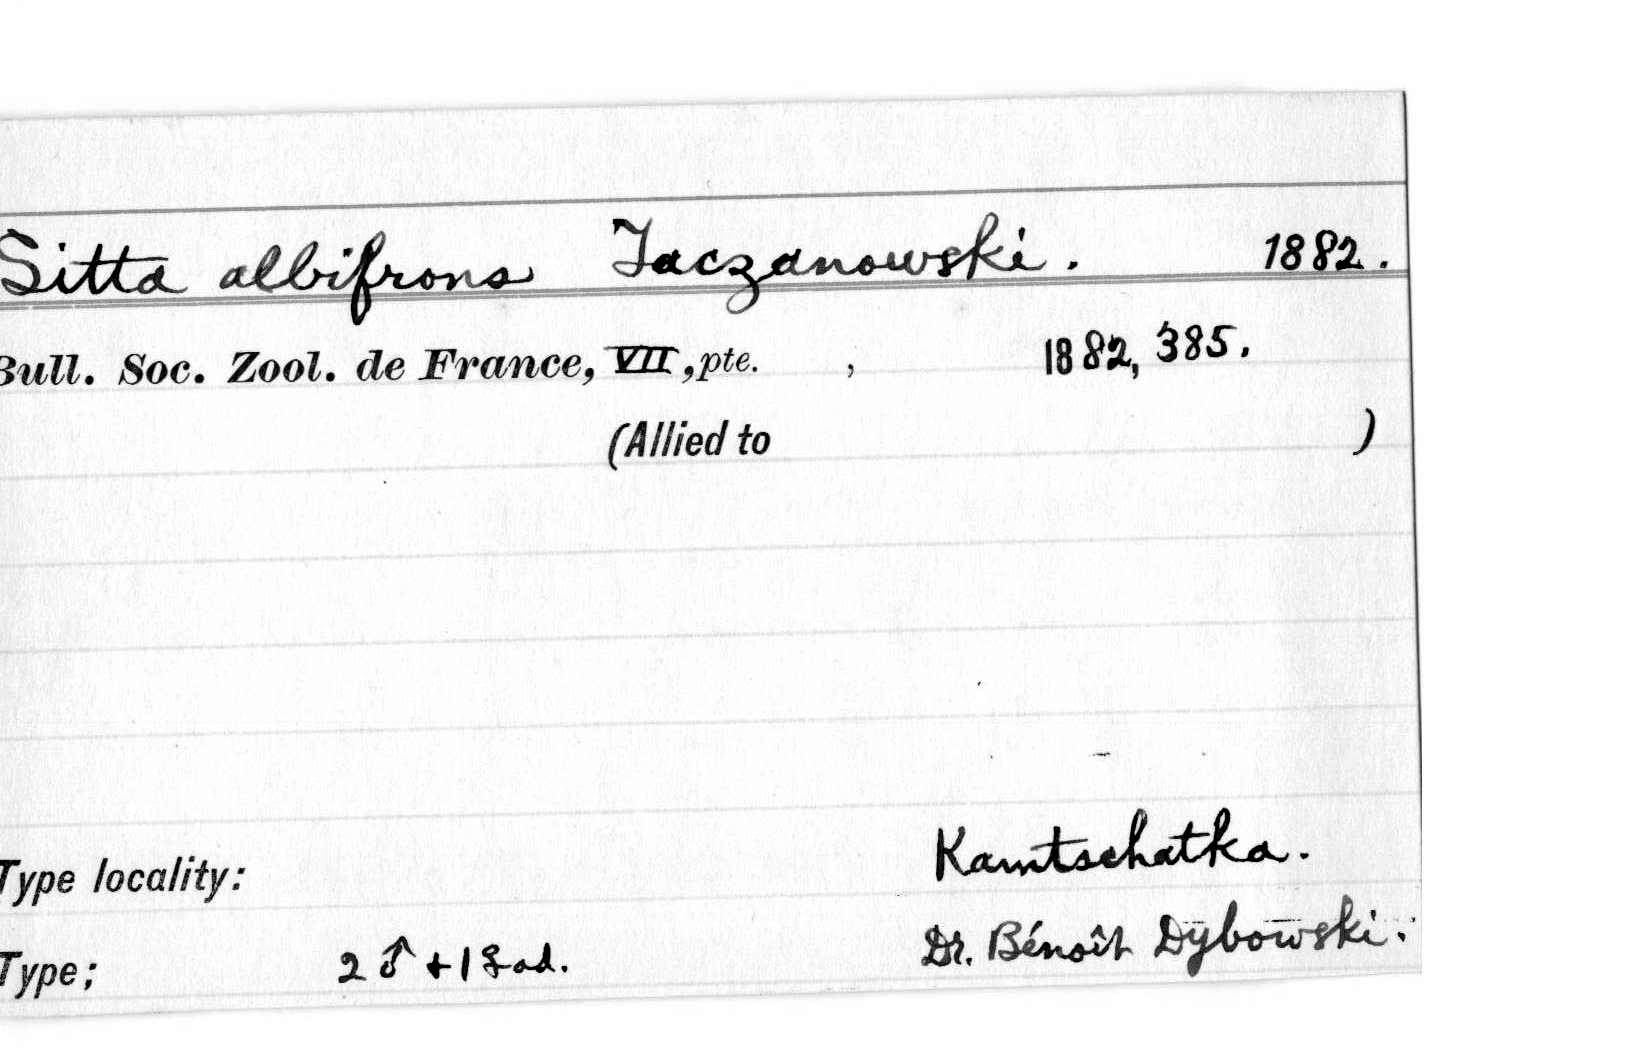 Sitta albifrons Taczanowski. 1882.
Bull. Soc. Zool. de France, VII, pte. , 1882, 385.
(Allied to )
Type locality: Kamtschatka.
Type; 2 ♂ + 1 ♀ ad. Dr. Bénoît Dybowski.